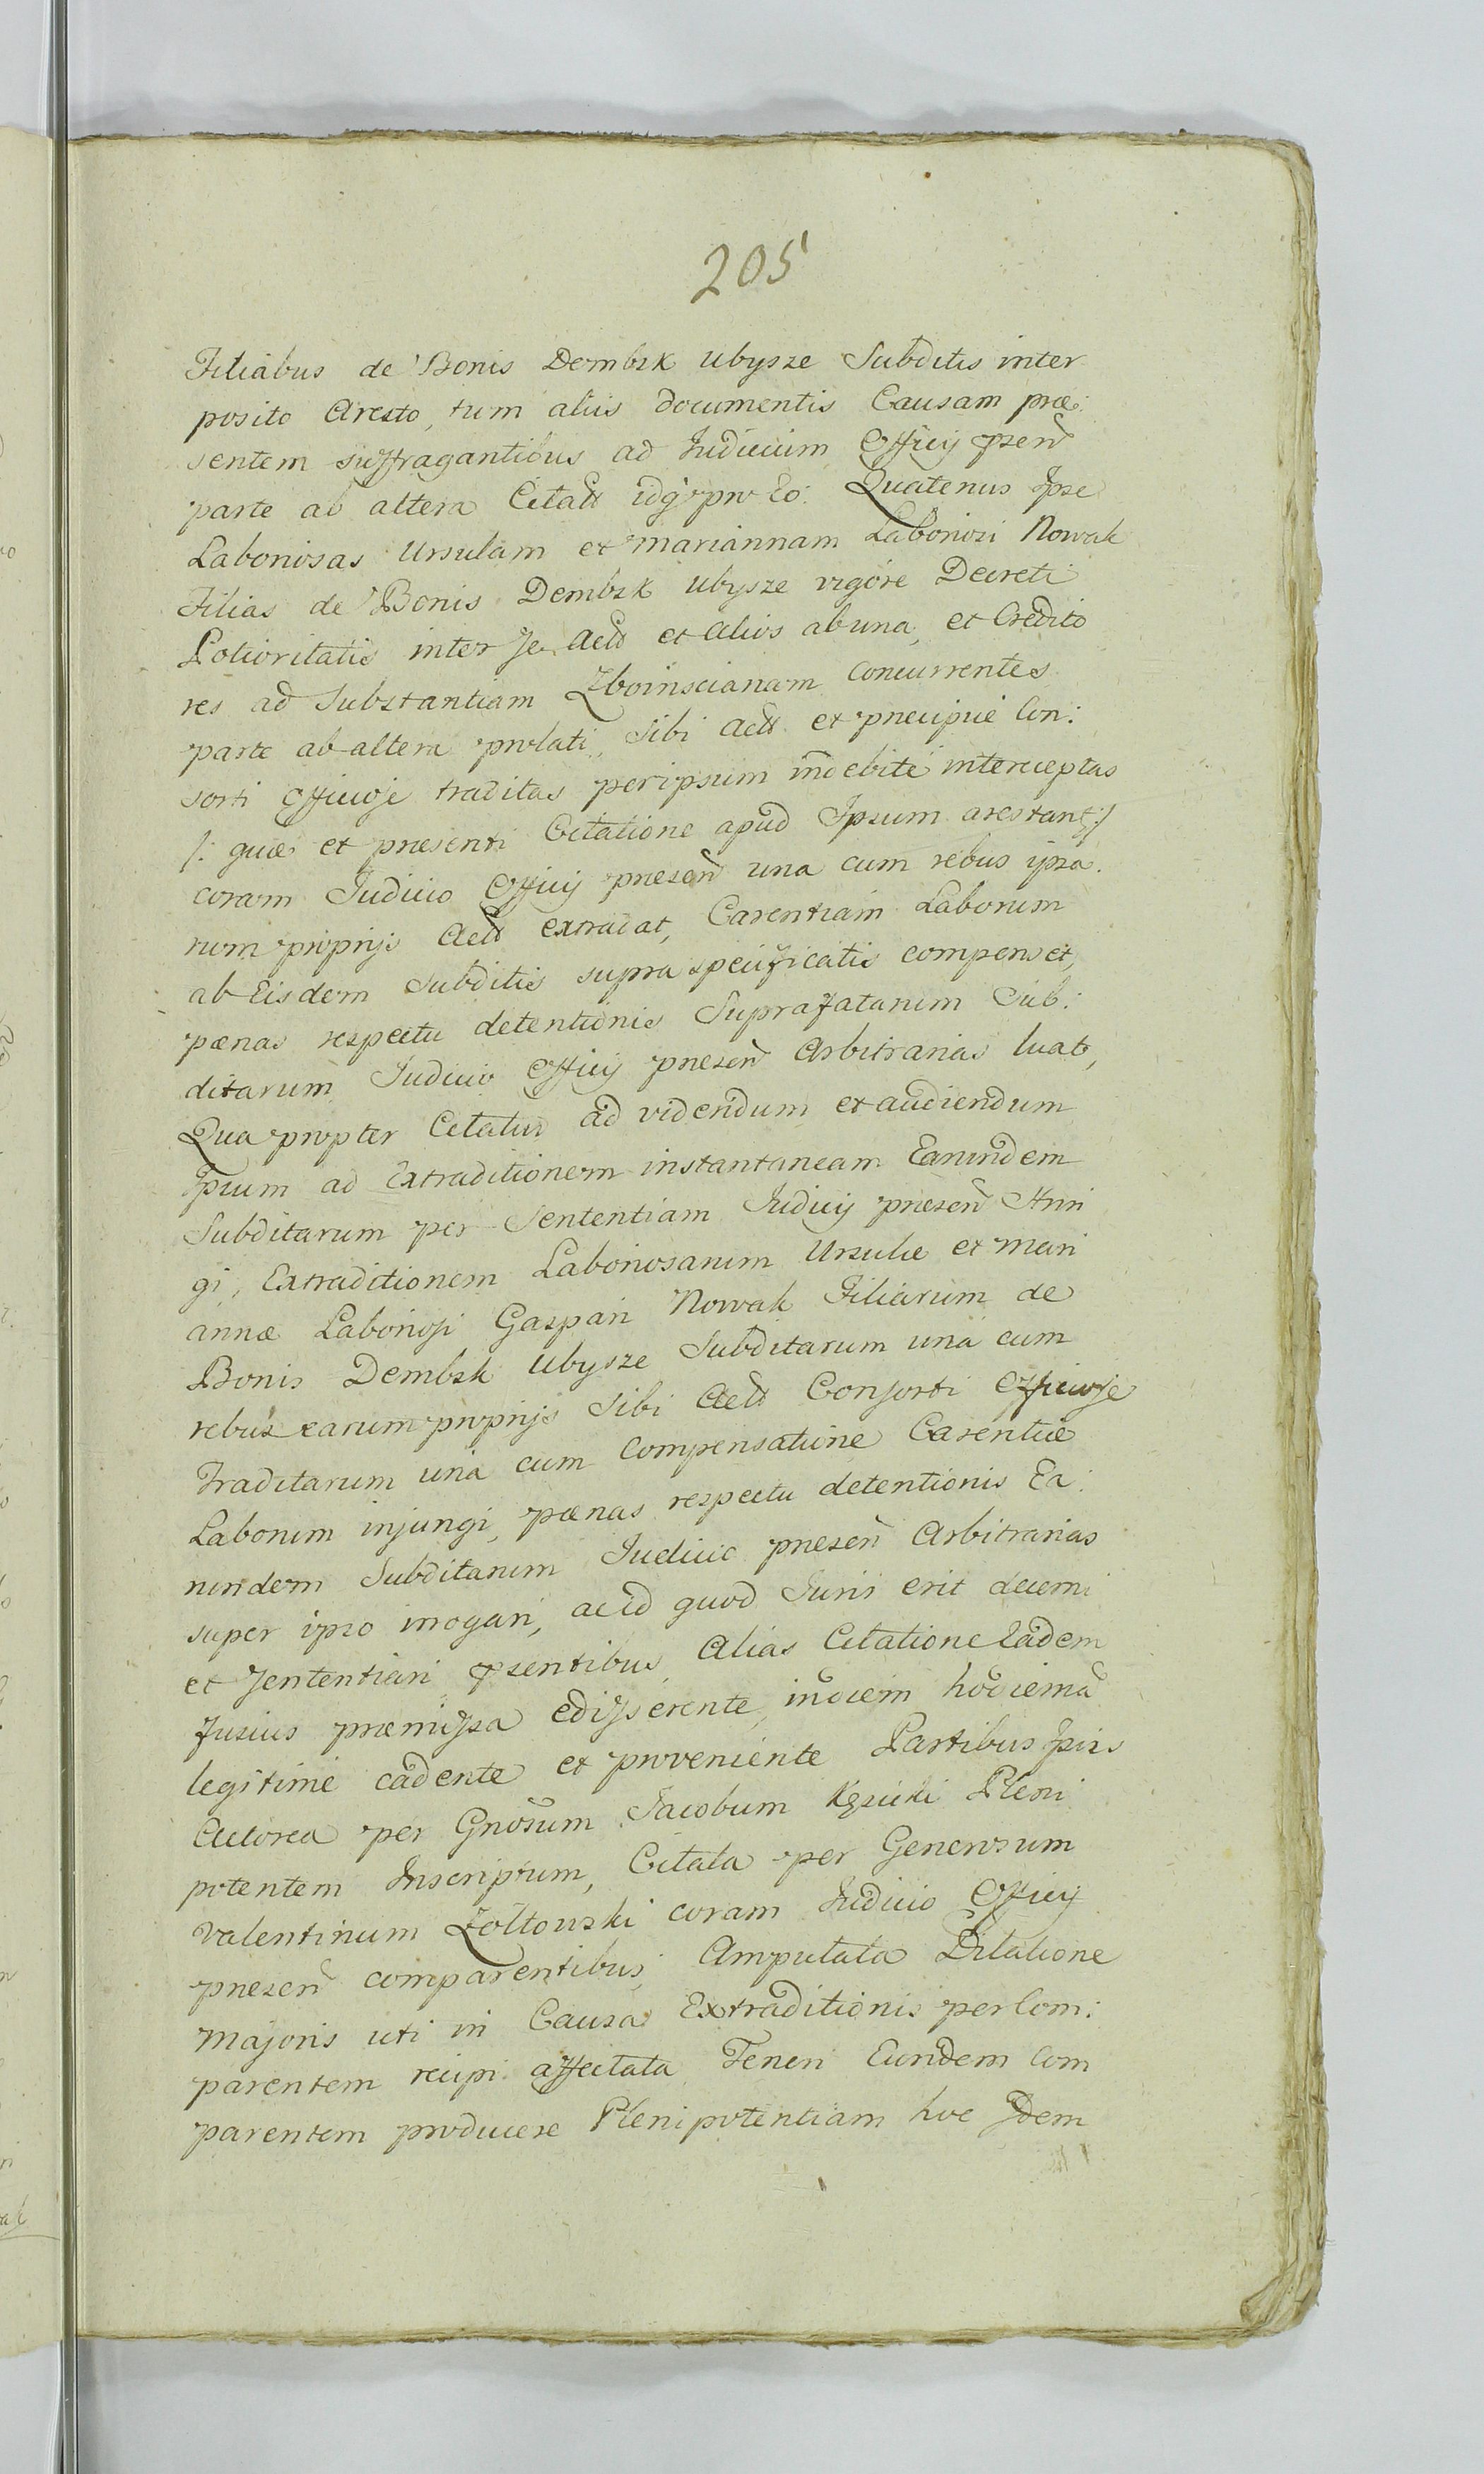 205
Filiabus de Bonis Dembsk Ubysze Subditis inter
posito Aresto, tum aliis documentis Causam præ:
sentem suffragantibus ad Judicium Officij pzeñ
parte ab altera Citatt idq pro Eo: Quatenus Ipse
Laboriosas Ursulam et Mariannam Laboriosi Nowak
Filias de Bonis Dembsk Ubysze vigore Decreti
Potioritatis inter se Actt et Alios ab una, et Credito
res ad Substantiam Zboinscianam concurrentes
parte ab altera prolati, Sibi Actt et præcipue Con:
sorti Officiose traditas per ipsum indebite interceptas
/: quæ et præsenti Citatione apud Ipsum arestant :/
coram Judicio Officij præseñ una cum rebus ipsa:
rum proprijs Actt extradat, Carentiam Laborum
ab Eisdem Subditis supra specificatis compenset,
pænas respectu detentionis Suprafatarum Sub:
ditarum Judicio Officij præseñ Arbitrarias luat,
Qua propter Citatus ad videndum et audiendum
Ipsum ad Extraditionem instantaneam Earundem
Subditarum per Sententiam Judicij præseñ Stri
gi, Extraditionem Laboriosarum Ursulæ et Mari
annæ Laboriosi Gaspari Nowak Filiarum de
Bonis Dembsk Ubysze Subditarum una cum
rebus earum proprijs Sibi Actt Consorti Officiose
Traditarum una cum Compensatione Carentiæ
Laborum injungi, pænas respectu detentionis Ea:
rundem Subditarum Judicio præseñ Arbitrarias
super ipso irrogari, ac id quod Juris erit decerni
et sententiari pzentibus, Alias Citatione Eadem
fusius præmissa edisserente, in diem hodiernã
legitime cadente et proveniente Partibus Ipsis
Actorea per Gnõsum Jacobum Kęsicki Pleni
potentem Inscriptum, Citata per Generosum
Valentinum Zołtowski coram Judicio Officij
præseñ comparentibus, Amputata Dilatione
Majoris uti in Causa Extraditionis per Com:
parentem recipi affectata Teneri Eundem Com
parentem producere Plenipotentiam hoc Idem